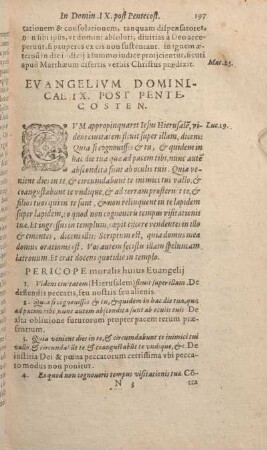 In Domin. IX. post Pentecost. 197
tationem & consolationem, tanquam dispensatores,
Deo
acceperunt, si pauperes ex eis non sustentant. in ignem æ-
ternũ in die iudicij à summo iudice proijcientur, sicuti
apud Matthæum assertis veritatis Christus prædixit. Mat.25.
EVANGELIVM DOMINI-
CAE IX. POST PENTE-
COSTEN.
CVM appropinquaret Iesus Hierusalẽ, vi- Luc.19.
dens ciuitatem fleuit super illam, dicens:
Quia si cognouisses & tu, & quidem in
hac die tua quæ ad pacem tibi, nunc autẽ
abscondita sunt ab oculis tuis. Quia ve-
nient dies in te & circundabunt te inimici tui vallo, &
coangustabunt te vndique, & ad terram prosternẽt te, &
filios tuos, qui in te sunt, & non relinquent in te lapidem
super lapidem, eo quod non cognoueris tempus visitationis
tuæ. Et ingressus in templum, cœpit eijcere vendentes in illo
& ementes, dicens illis: Scriptum est, quia domus mea
domus orationis est. Vos autem fecistis illam speluncam
latronum. Et erat docens quotidie in templo.
PERICOPE moralis huius Euangelij
1. Videns ciuitatem (Hierusalem) fleuit super illam. De
deflendis peccatis, seu nostris seu alienis.
2. Quia si cognouisses & tu, & quidem in hac die tua, quæ
ad pacem tibi, nunc autem abscondita sunt ab oculis tuis. De
stulta obliuione futurorum propter pacem rerum præ-
sentium.
3. Quia venient dies in te, & circundabunt te inimici tui
vallo & circundabũt te & coangustabũt te vndique, &c. De
iustitia Dei & pœna peccatorum certissima vbi pec-
cato modus non ponitur.
4. Eo quod non cognoueris tempus visitationis tuæ. Cõ
N 3 tra